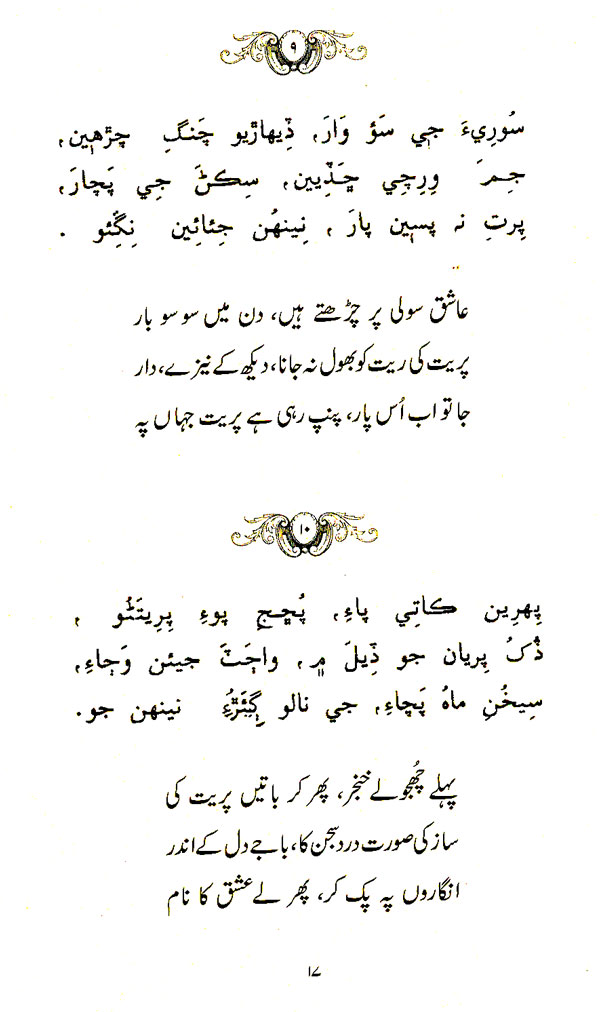 ۹
سُورِيءَ جٖي سَؤ وَارَ، ڏِيهاڙِيو چَنگِ چڙهٖين،
جِمَ وِرِچِي ڇَڏِيين، سِڪَڻَ جِي پَچارَ،
پِرتِ نہ پسٖين پارَ، نِينهُن جِئائِين نِڱِئو .
عاشق سولی پر چڑھتے ہیں، دن میں سو سو بار
پریت کی ریت کو بھول نہ جانا، دیکھ کے نیزے، دار
جا تو اب اُس پار، پنپ رہی ہے پریت جہاں پہ
۱۰
پِهرِين ڪاتِي پاءِ، پُڇجِ پوءِ پِرِيتَڻُو ،
ڏُکُ پِريان جو ڏِيلَ ۾، واڄَٽَ جيئن وَڄاءِ،
سِيخُنِ ماهُ پَچاءِ، جي نالو ڳِيَڙُءِ نينهن جو.
پہلے چُھولے خنجر، پھر کر باتیں پریت کی
ساز کی صورت درد سجن کا، باجے دل کے اندر
انگاروں پہ پک کر، پھر لے عشق کا نام
۱۷